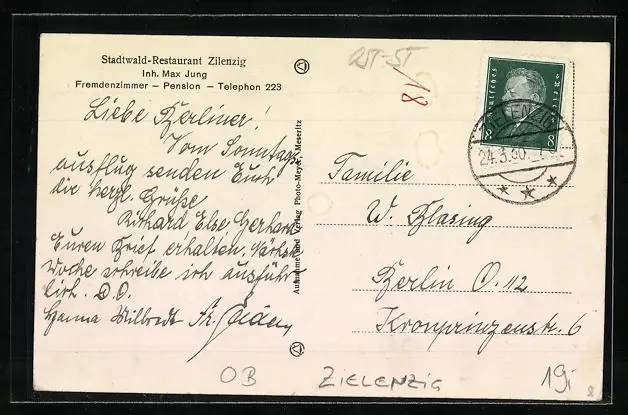 Stadtwald-Restaurant Zilenzig
Inh. Max Jung
Fremdenzimmer — Pension — Telephon 223
Liebe Berliner!
Vom Sonntags-
ausflug senden Euch
die herzl. Grüße
Richard Else, Gerhard
Euren Brief erhalten. Nächste
Woche schreibe ich ausführ-
lich. D.O.
Hanna
Aufnahme und Verlag Photo-Meyer, Meseritz
OST-ST
18
Deutsches Reich
8 8
ZIELENZIG
24.3.30.
Familie
W. Blasing
Berlin O. 112
Kronprinzenstr. 6
OB
ZIELENZIG
19i
8